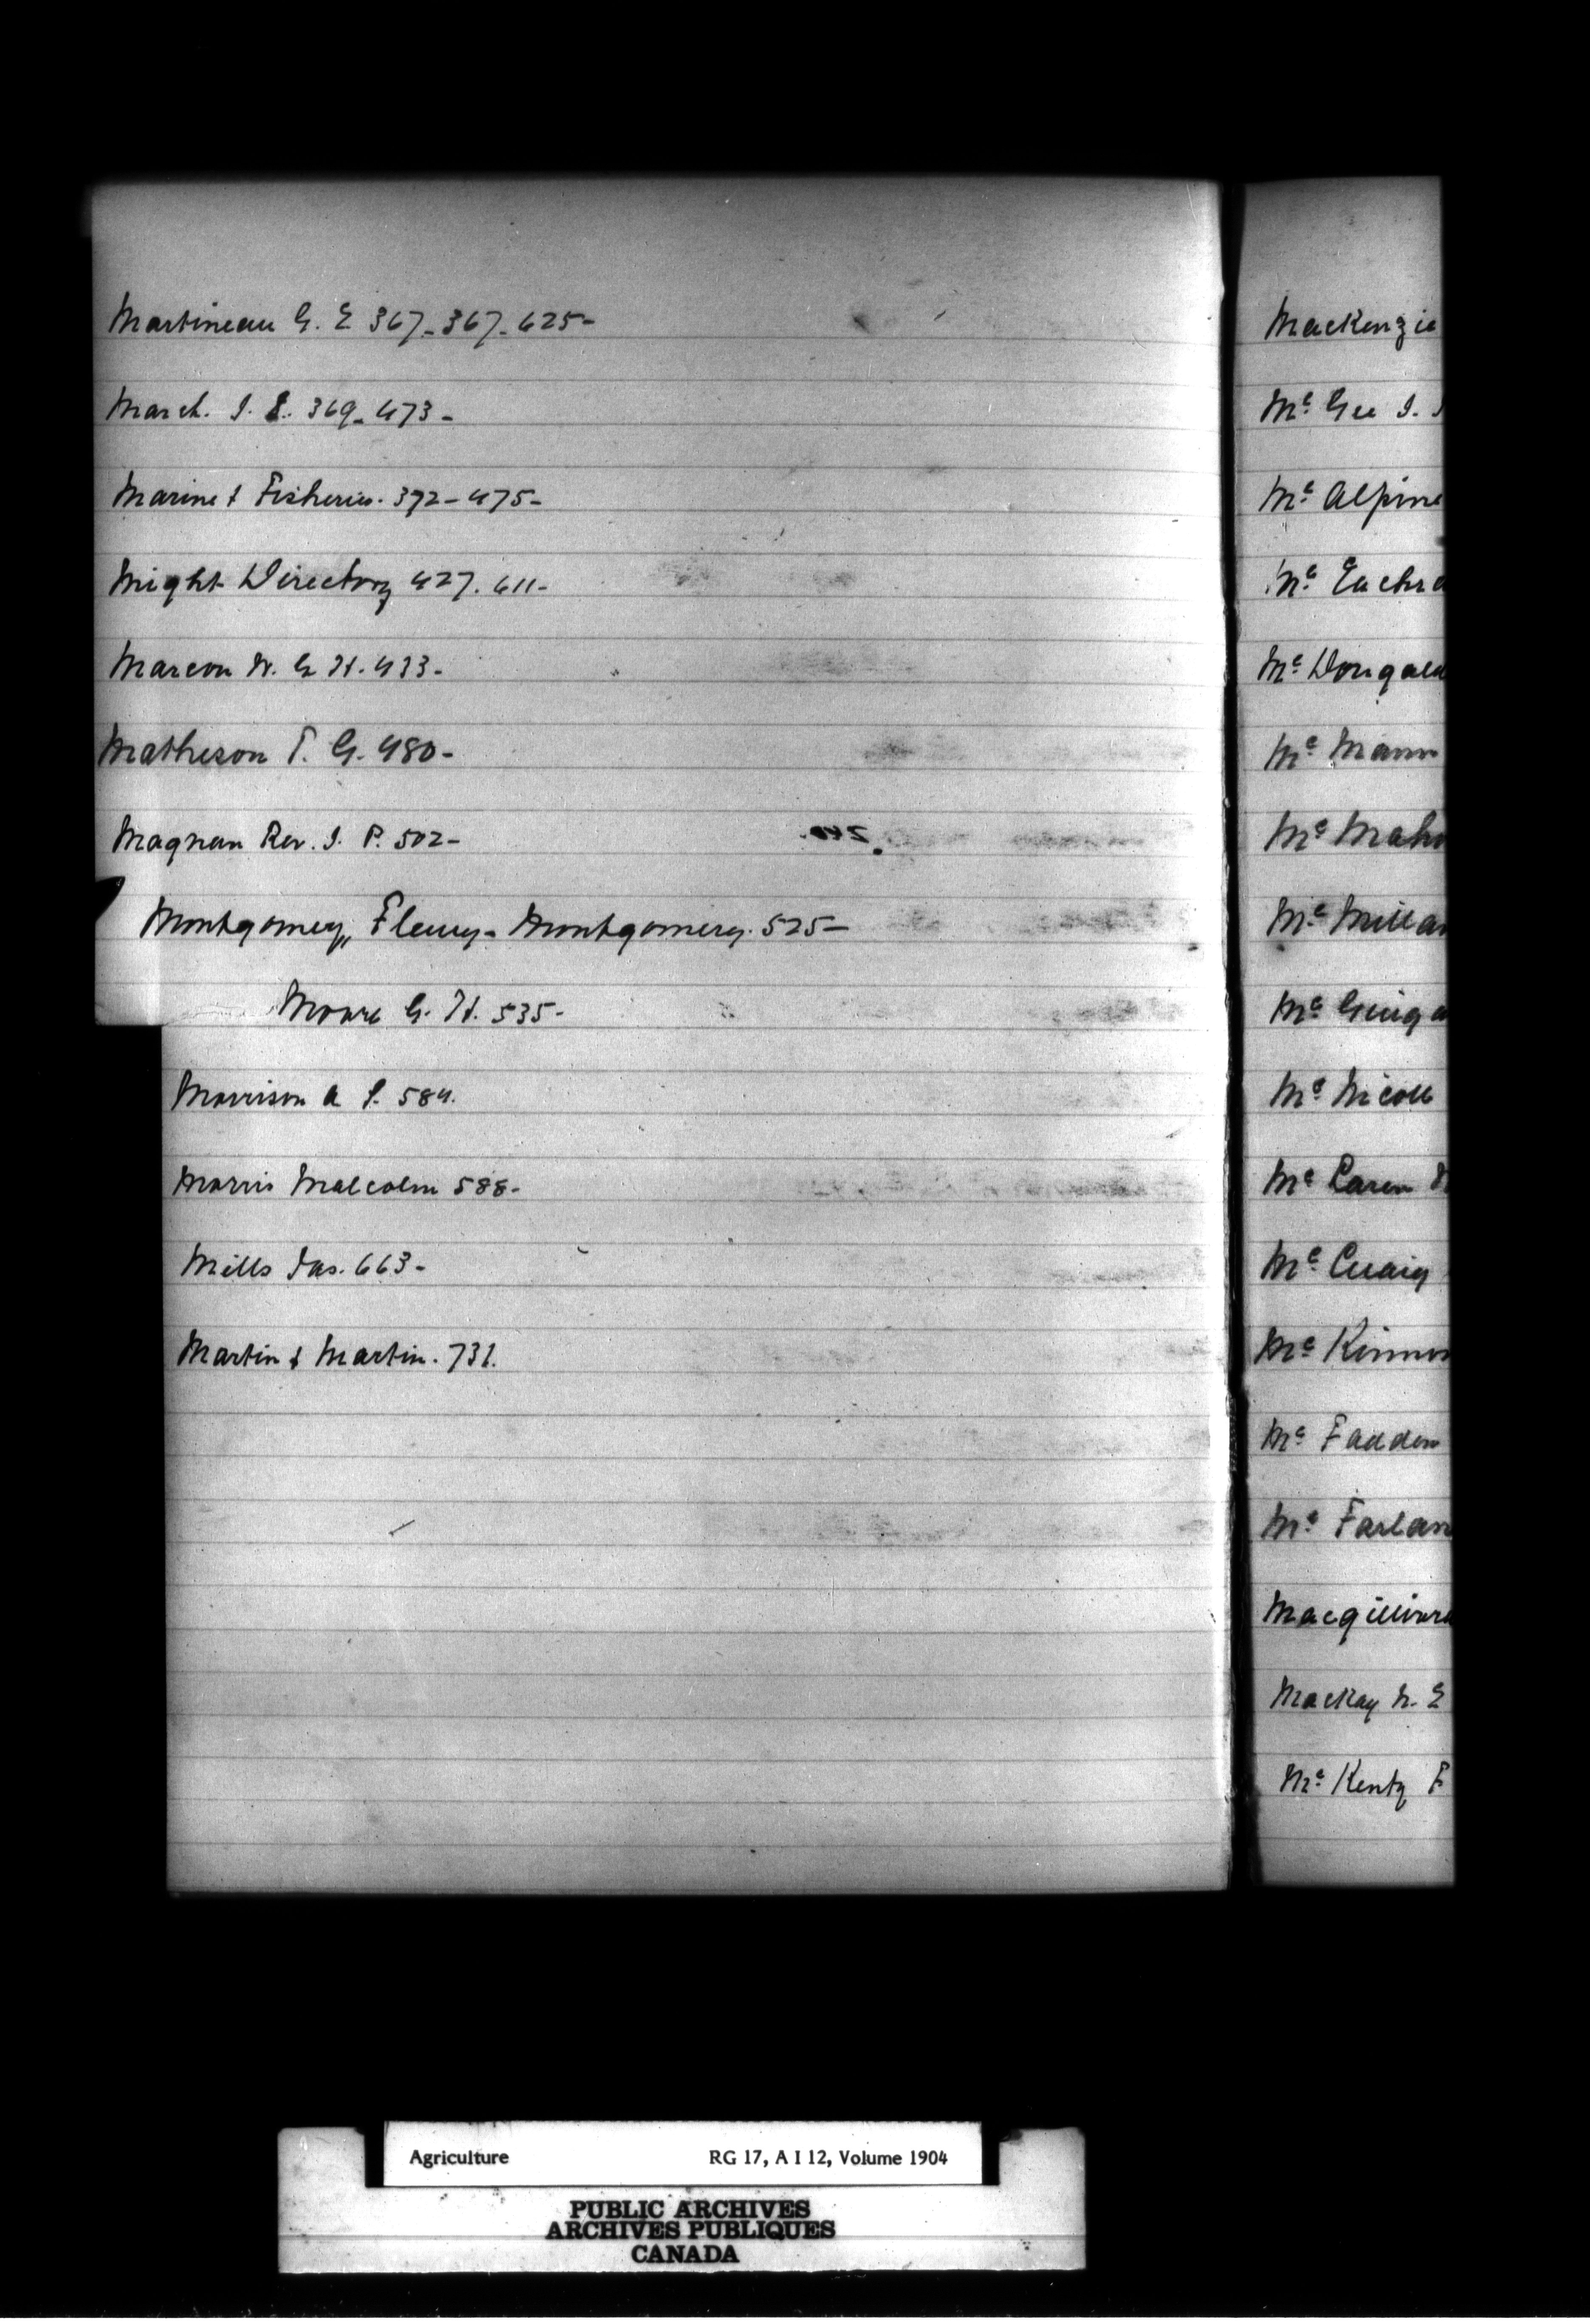 Martineau G. E 367-367-625-
March. J. E. 369-473-
Marine & Fisheries. 372-475-
Might Directory 427. 611-
Marcon W. G H. 433-
Matheson T. G. 480-
Magnan Rev. J. P. 502-
Montgomery, Fleury-Montgomery. 525-
Moore G. H. 535-
Morrison A S. 584.
Morris Malcolm 588-
Mills Jas. 663-
Martin & Martin. 731.
MacKenzie
Mc Gee J. J
Mc Alpine
Mc Eachra
Mc Dougald
Mc Mann
Mc Maho
Mc Millan
Mc Guiga
Mc Nicoll
Mc Laren
Mc Cuaig
Mc Kinnon
Mc Fadden
Mc Farlan
Macgillivra
Mackay N. E
Mc Kenty F
Agriculture RG 17, A I 12, Volume 1904
PUBLIC ARCHIVES
ARCHIVES PUBLIQUES
CANADA